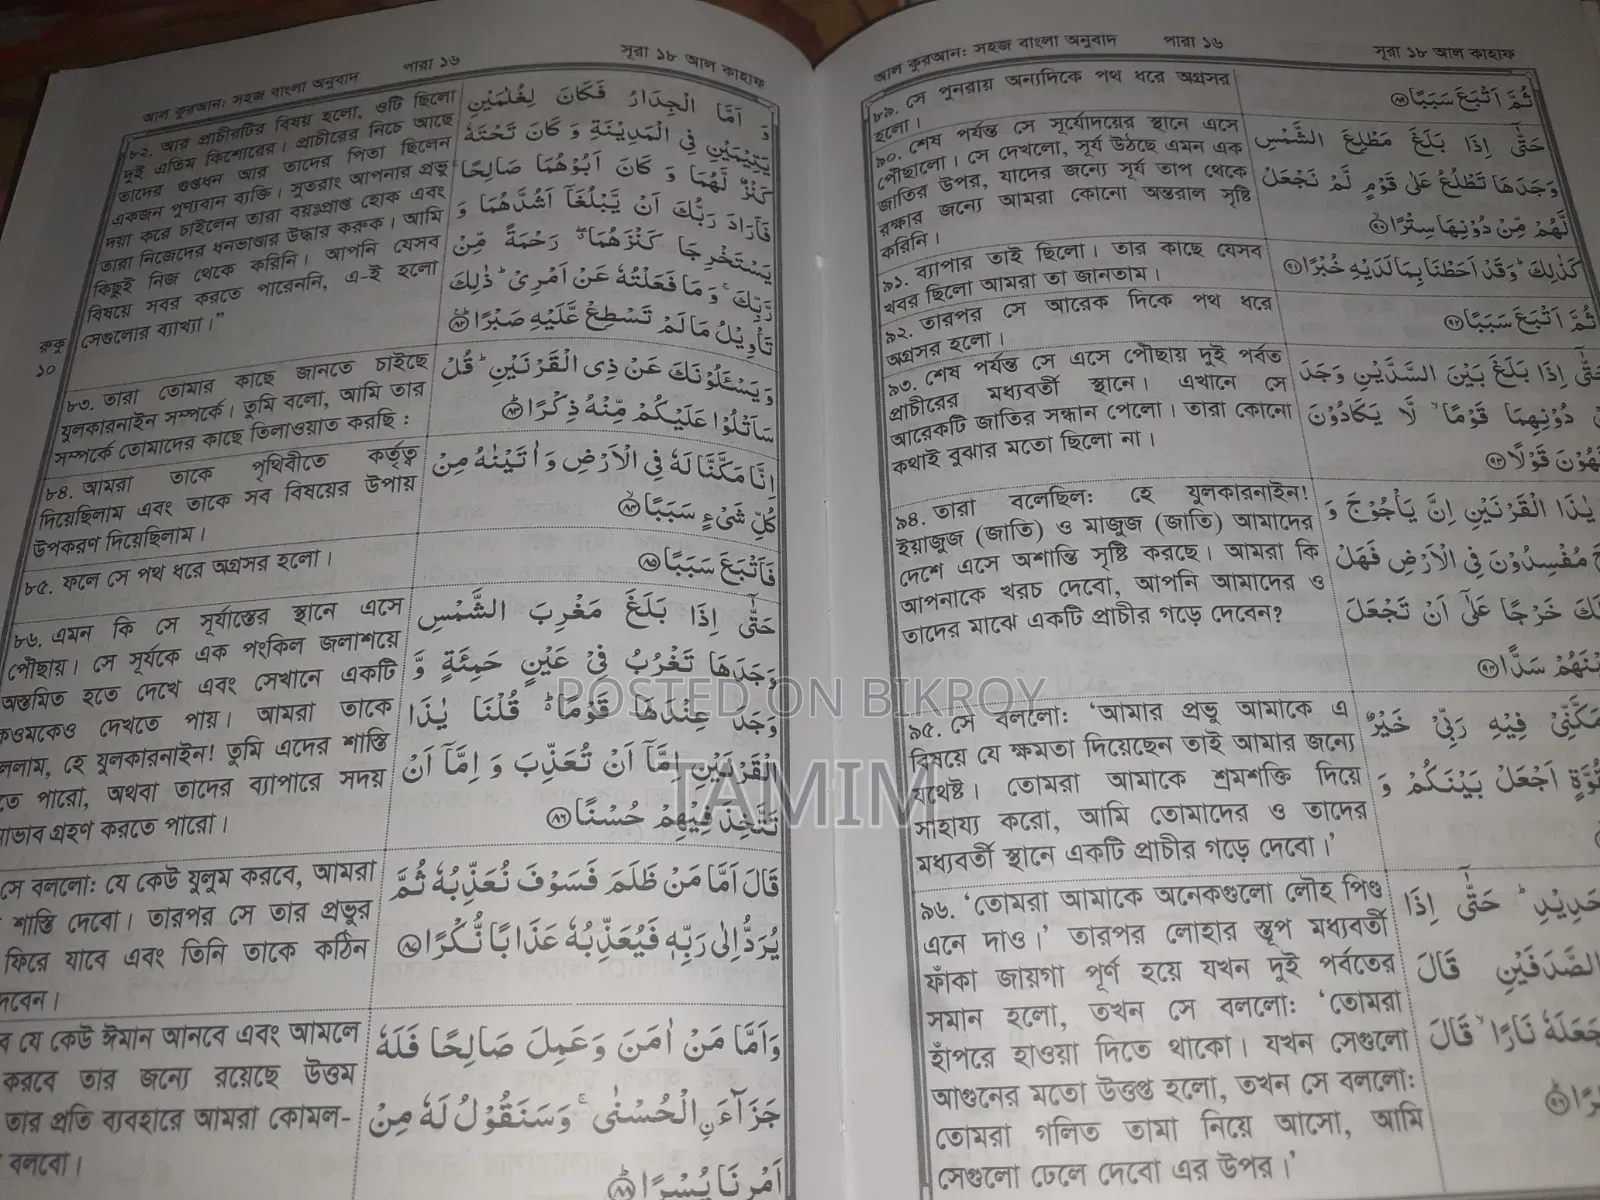 আল কুরআন: সহজ বাংলা অনুবাদ
পারা ১৬
সূরা ১৮ আল কাহাফ
৮২. আর প্রাচীরটির বিষয় হলো, ওটি ছিলো
দুই এতিম কিশোরের। প্রাচীরের নিচে আছে
তাদের গুপ্তধন আর তাদের পিতা ছিলেন
একজন পুণ্যবান ব্যক্তি। সুতরাং আপনার প্রভু
দয়া করে চাইলেন তারা বয়ঃপ্রাপ্ত হোক এবং
তারা নিজেদের ধনভাণ্ডার উদ্ধার করুক। আমি
কিছুই নিজ থেকে করিনি। আপনি যেসব
বিষয়ে সবর করতে পারেননি, এ-ই হলো
সেগুলোর ব্যাখ্যা।"
وَ اَمَّا الْجِدَارُ فَكَانَ لِغُلٰمَيْنِ
يَتِيْمَيْنِ فِي الْمَدِيْنَةِ وَ كَانَ تَحْتَهٗ
كَنْزٌ لَّهُمَا وَ كَانَ اَبُوْهُمَا صَالِحًا ۚ
فَاَرَادَ رَبُّكَ اَنْ يَّبْلُغَاۤ اَشُدَّهُمَا وَ
يَسْتَخْرِجَا كَنْزَهُمَا ۖ رَحْمَةً مِّنْ
رَّبِّكَ ۚ وَ مَا فَعَلْتُهٗ عَنْ اَمْرِيْ ؕ ذٰلِكَ
تَاْوِيْلُ مَا لَمْ تَسْطِعْ عَّلَيْهِ صَبْرًا ﴿۸۲﴾
রুকু
১০
৮৩. তারা তোমার কাছে জানতে চাইছে
যুলকারনাইন সম্পর্কে। তুমি বলো, আমি তার
সম্পর্কে তোমাদের কাছে তিলাওয়াত করছি :
وَ يَسْـَٔلُوْنَكَ عَنْ ذِي الْقَرْنَيْنِ ؕ قُلْ
سَاَتْلُوْا عَلَيْكُمْ مِّنْهُ ذِكْرًا ﴿۸۳﴾
৮৪. আমরা তাকে পৃথিবীতে কর্তৃত্ব
দিয়েছিলাম এবং তাকে সব বিষয়ের উপায়
উপকরণ দিয়েছিলাম।
اِنَّا مَكَّنَّا لَهٗ فِي الْاَرْضِ وَ اٰتَيْنٰهُ مِنْ
كُلِّ شَيْءٍ سَبَبًا ﴿۸۴﴾
৮৫. ফলে সে পথ ধরে অগ্রসর হলো।
فَاَتْبَعَ سَبَبًا ﴿۸۵﴾
৮৬. এমন কি সে সূর্যাস্তের স্থানে এসে
পৌঁছায়। সে সূর্যকে এক পংকিল জলাশয়ে
অস্তমিত হতে দেখে এবং সেখানে একটি
কওমকেও দেখতে পায়। আমরা তাকে
হে যুলকারনাইন! তুমি এদের শাস্তি
পারো, অথবা তাদের ব্যাপারে সদয়
গ্রহণ করতে পারো।
حَتّٰۤى اِذَا بَلَغَ مَغْرِبَ الشَّمْسِ
وَجَدَهَا تَغْرُبُ فِيْ عَيْنٍ حَمِئَةٍ وَّ
وَجَدَ عِنْدَهَا قَوْمًا ؕ قُلْنَا يٰذَا
الْقَرْنَيْنِ اِمَّاۤ اَنْ تُعَذِّبَ وَ اِمَّاۤ اَنْ
تَتَّخِذَ فِيْهِمْ حُسْنًا ﴿۸۶﴾
সে বললো: যে কেউ যুলুম করবে, আমরা
শাস্তি দেবো। তারপর সে তার প্রভুর
ফিরে যাবে এবং তিনি তাকে কঠিন
قَالَ اَمَّا مَنْ ظَلَمَ فَسَوْفَ نُعَذِّبُهٗ ثُمَّ
يُرَدُّ اِلٰى رَبِّهٖ فَيُعَذِّبُهٗ عَذَابًا نُّكْرًا ﴿۸۷﴾
যে কেউ ঈমান আনবে এবং আমলে
করবে তার জন্যে রয়েছে উত্তম
তার প্রতি ব্যবহারে আমরা কোমল-
বলবো।
وَ اَمَّا مَنْ اٰمَنَ وَ عَمِلَ صَالِحًا فَلَهٗ
جَزَآءَ ِالْحُسْنٰى ۚ وَ سَنَقُوْلُ لَهٗ مِنْ
اَمْرِنَا يُسْرًا ﴿۸۸﴾
আল কুরআন: সহজ বাংলা অনুবাদ
পারা ১৬
সূরা ১৮ আল কাহাফ
৮৯. সে পুনরায় অন্যদিকে পথ ধরে অগ্রসর
হলো।
ثُمَّ اَتْبَعَ سَبَبًا ﴿۸۹﴾
৯০. শেষ পর্যন্ত সে সূর্যোদয়ের স্থানে এসে
পৌঁছালো। সে দেখলো, সূর্য উঠছে এমন এক
জাতির উপর, যাদের জন্যে সূর্য তাপ থেকে
রক্ষার জন্যে আমরা কোনো অন্তরাল সৃষ্টি
করিনি।
حَتّٰۤى اِذَا بَلَغَ مَطْلِعَ الشَّمْسِ
وَجَدَهَا تَطْلُعُ عَلٰى قَوْمٍ لَّمْ نَجْعَلْ
لَّهُمْ مِّنْ دُوْنِهَا سِتْرًا ﴿۹۰﴾
৯১. ব্যাপার তাই ছিলো। তার কাছে যেসব
খবর ছিলো আমরা তা জানতাম।
كَذٰلِكَ ؕ وَ قَدْ اَحَطْنَا بِمَا لَدَيْهِ خُبْرًا ﴿۹۱﴾
৯২. তারপর সে আরেক দিকে পথ ধরে
অগ্রসর হলো।
ثُمَّ اَتْبَعَ سَبَبًا ﴿۹۲﴾
৯৩. শেষ পর্যন্ত সে এসে পৌঁছায় দুই পর্বত
প্রাচীরের মধ্যবর্তী স্থানে। এখানে সে
আরেকটি জাতির সন্ধান পেলো। তারা কোনো
কথাই বুঝার মতো ছিলো না।
حَتّٰۤى اِذَا بَلَغَ بَيْنَ السَّدَّيْنِ وَجَدَ
دُوْنِهِمَا قَوْمًا ۙ لَّا يَكَادُوْنَ
قَوْلًا ﴿۹۳﴾
৯৪. তারা বলেছিল: হে যুলকারনাইন!
ইয়াজুজ (জাতি) ও মাজুজ (জাতি) আমাদের
দেশে এসে অশান্তি সৃষ্টি করছে। আমরা কি
আপনাকে খরচ দেবো, আপনি আমাদের ও
তাদের মাঝে একটি প্রাচীর গড়ে দেবেন?
يٰذَا الْقَرْنَيْنِ اِنَّ يَاْجُوْجَ وَ
مُفْسِدُوْنَ فِي الْاَرْضِ فَهَلْ
خَرْجًا عَلٰۤى اَنْ تَجْعَلَ
سَدًّا ﴿۹۴﴾
৯৫. সে বললো: ‘আমার প্রভু আমাকে এ
বিষয়ে যে ক্ষমতা দিয়েছেন তাই আমার জন্যে
যথেষ্ট। তোমরা আমাকে শ্রমশক্তি দিয়ে
সাহায্য করো, আমি তোমাদের ও তাদের
মধ্যবর্তী স্থানে একটি প্রাচীর গড়ে দেবো।’
فِيْهِ رَبِّيْ خَيْرٌ
اَجْعَلْ بَيْنَكُمْ وَ
৯৬. ‘তোমরা আমাকে অনেকগুলো লৌহ পিণ্ড
এনে দাও।’ তারপর লোহার স্তূপ মধ্যবর্তী
ফাঁকা জায়গা পূর্ণ হয়ে যখন দুই পর্বতের
সমান হলো, তখন সে বললো: ‘তোমরা
হাঁপরে হাওয়া দিতে থাকো। যখন সেগুলো
আগুনের মতো উত্তপ্ত হলো, তখন সে বললো:
তোমরা গলিত তামা নিয়ে আসো, আমি
সেগুলো ঢেলে দেবো এর উপর।’
حَتّٰۤى اِذَا
الصَّدَفَيْنِ قَالَ
جَعَلَهٗ نَارًا ۙ قَالَ
POSTED ON BIKROY
TAMIM